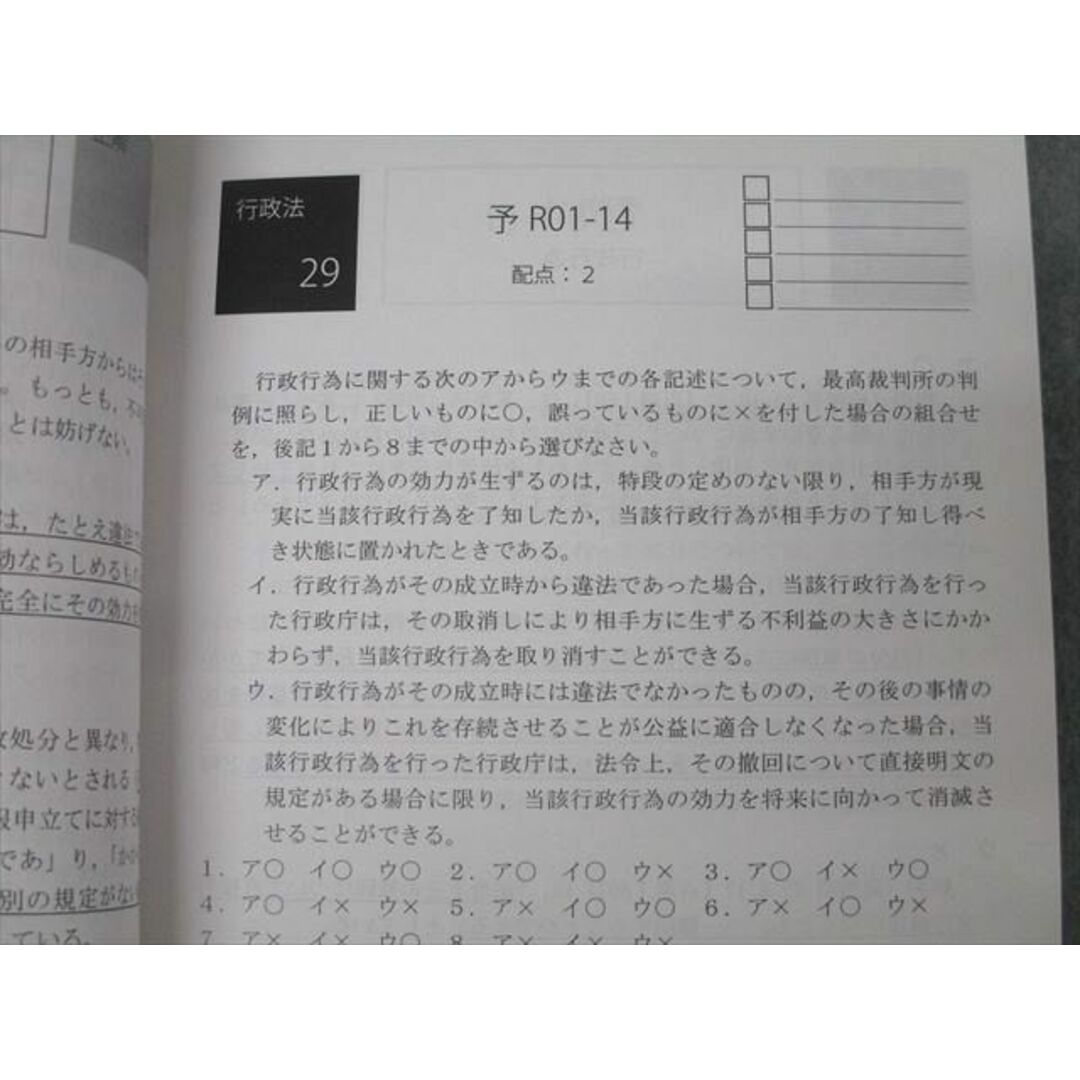 行政法
29
予 R01-14
配点：2
行政行為に関する次のアからウまでの各記述について，最高裁判所の判
例に照らし，正しいものに〇，誤っているものに×を付した場合の組合せ
を，後記1から8までの中から選びなさい。
ア．行政行為の効力が生ずるのは，特段の定めのない限り，相手方が現
実に当該行政行為を了知したか，当該行政行為が相手方の了知し得べ
き状態に置かれたときである。
イ．行政行為がその成立時から違法であった場合，当該行政行為を行っ
た行政庁は，その取消しにより相手方に生ずる不利益の大きさにかか
わらず，当該行政行為を取り消すことができる。
ウ．行政行為がその成立時には違法でなかったものの，その後の事情の
変化によりこれを存続させることが公益に適合しなくなった場合，当
該行政行為を行った行政庁は，法令上，その撤回について直接明文の
規定がある場合に限り，当該行政行為の効力を将来に向かって消滅さ
せることができる。
1．ア〇 イ〇 ウ〇 2．ア〇 イ〇 ウ× 3．ア〇 イ× ウ〇
4．ア〇 イ× ウ× 5．ア× イ〇 ウ〇 6．ア× イ〇 ウ×
7．ア× イ× ウ〇 8．ア× イ× ウ×
の相手方からは
。もっとも，不
とは妨げない。
は，たとえ違法
効ならしめるも
完全にその効力を
処分と異なり，
ないとされる
申立てに対する
であ」り，「
別の規定がない
ている。